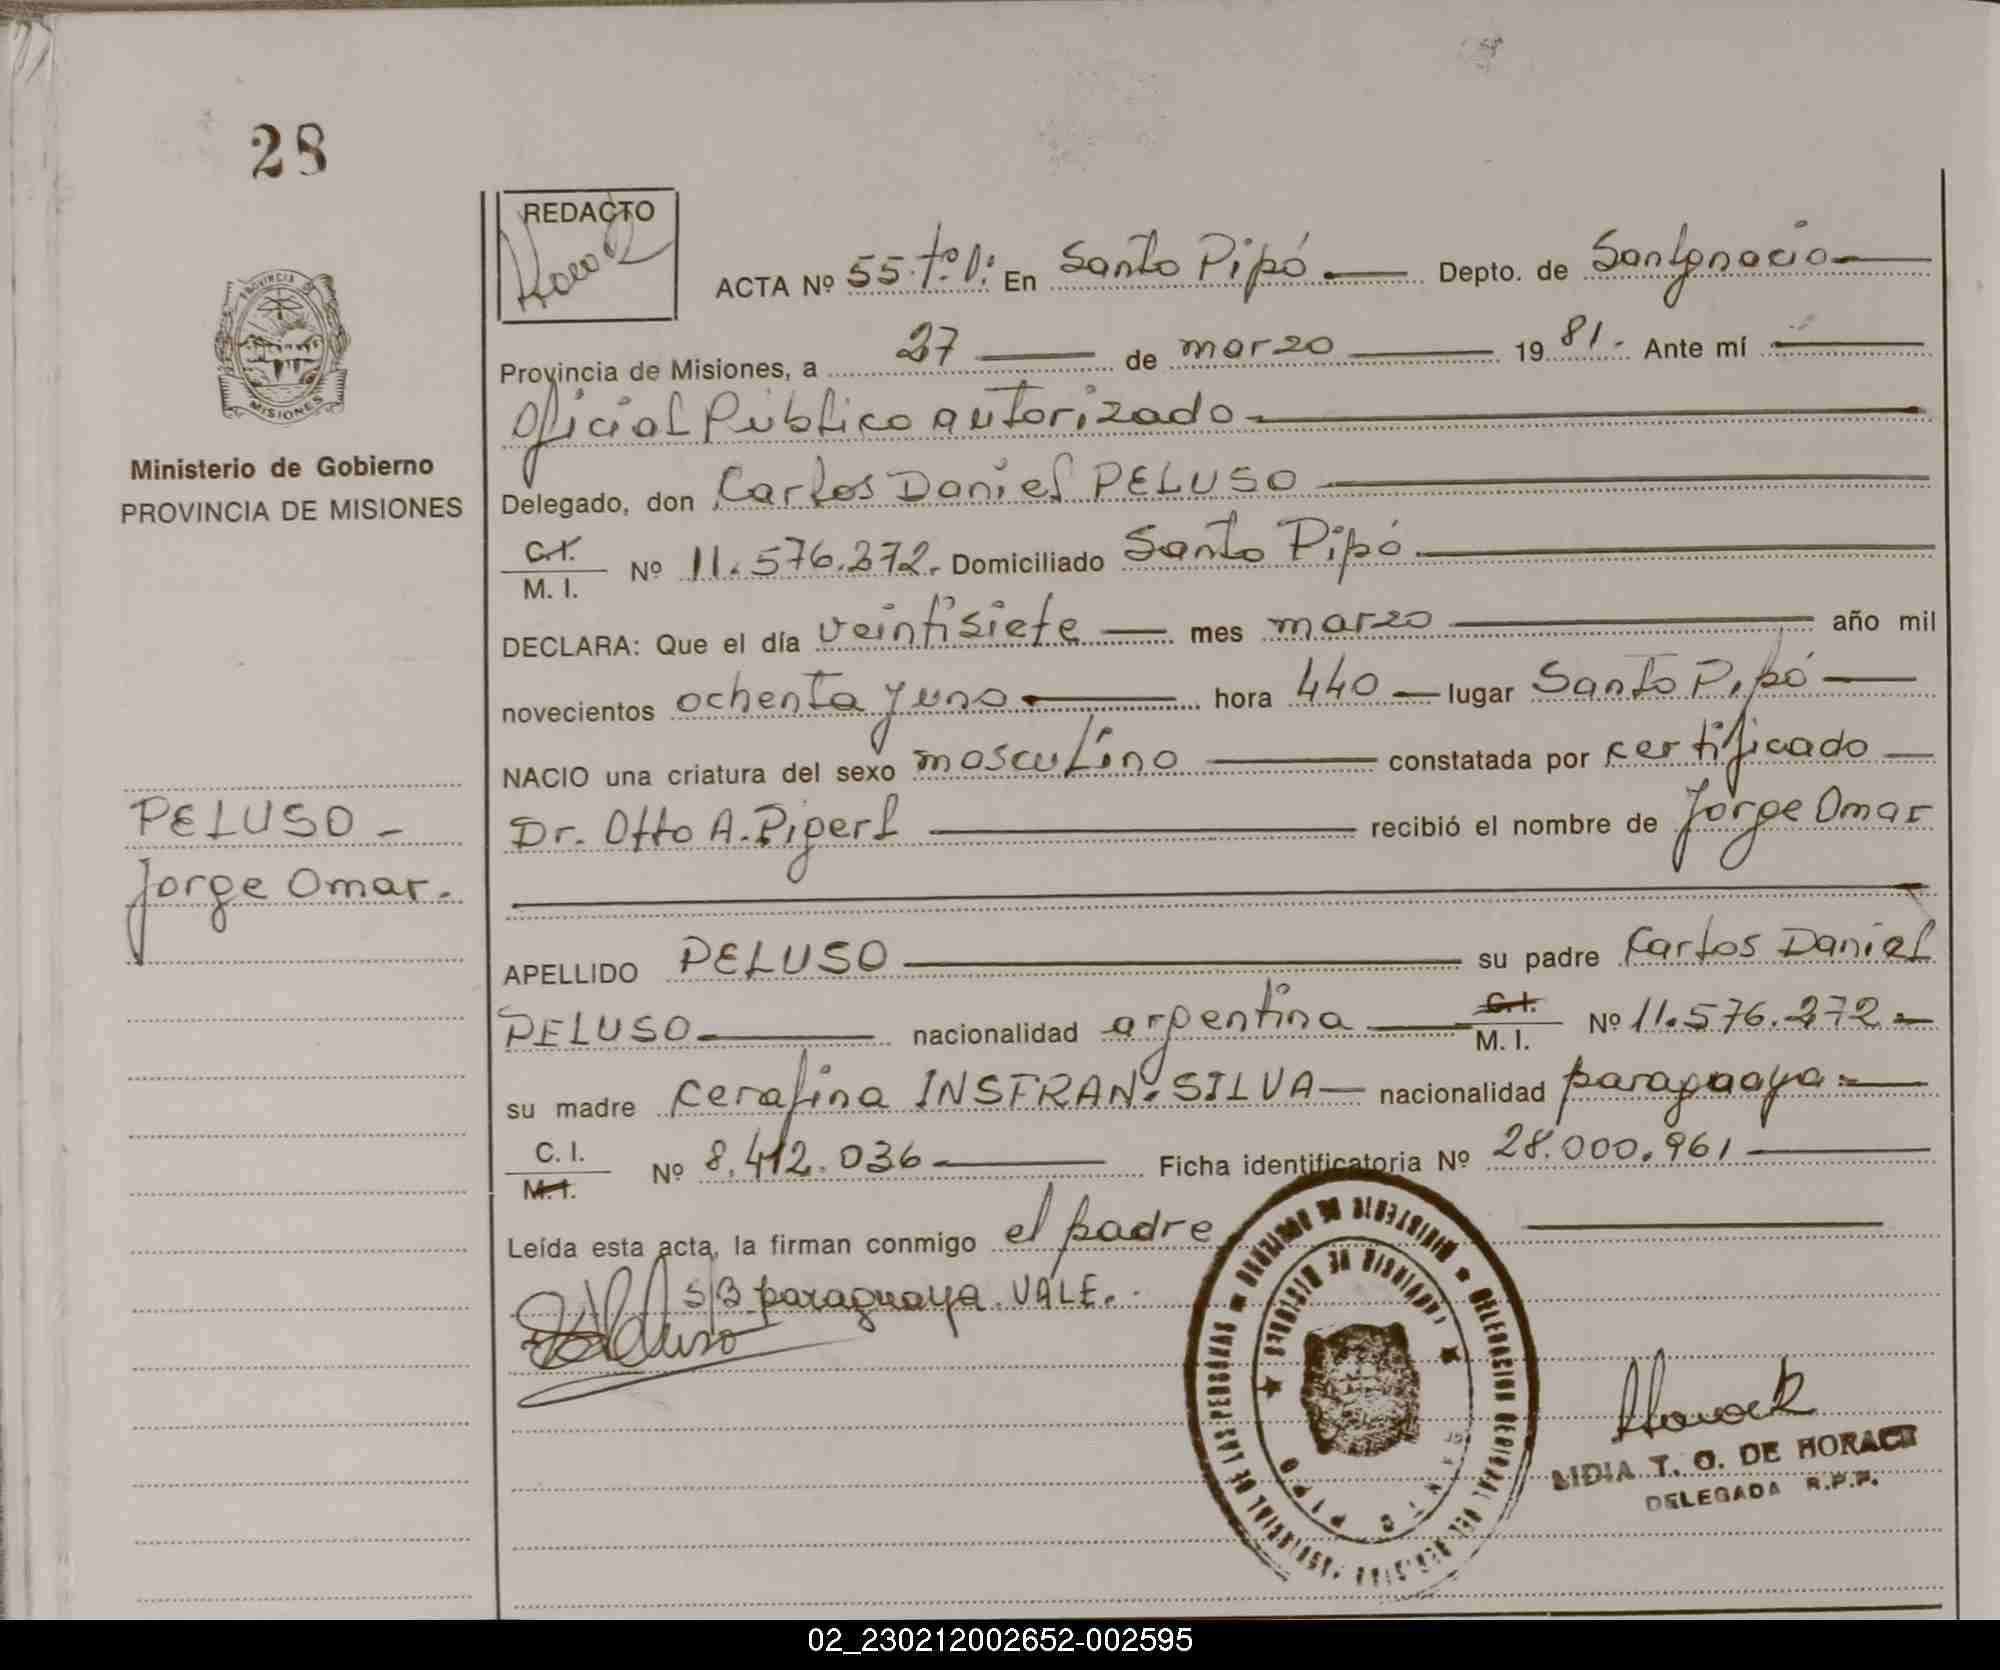 28
REDACTO
ACTA Nº 55. tº. 1: En Santo Pipó. Depto. de San Ignacio
Provincia de Misiones, a 27 de marzo 1981. Ante mí
Oficial Público autorizado
Delegado, don Carlos Daniel PELUSO
C.I.
M. I. Nº 11.576.272. Domiciliado Santo Pipó.
DECLARA: Que el día veintisiete mes marzo año mil
novecientos ochenta y uno hora 440 lugar Santo Pipó
NACIO una criatura del sexo masculino constatada por certificado
Dr. Otto A. Piperl recibió el nombre de Jorge Omar
APELLIDO PELUSO su padre Carlos Daniel
PELUSO nacionalidad argentina C.I. M. I. Nº 11.576.272
su madre Cerafina INSFRAN. SILVA nacionalidad paraguaya
C. I.
M. I. Nº 8.412.036 Ficha identificatoria Nº 28.000.961
Leída esta acta, la firman conmigo el padre
S/B paraguaya. VALE.
PROVINCIA DE
MISIONES
Ministerio de Gobierno
PROVINCIA DE MISIONES
PELUSO
Jorge Omar.
MINISTERIO DE GOBIERNO ★ DELEGACION REGIONAL DEL REGISTRO PROVINCIAL DE LAS PERSONAS
PROVINCIA DE MISIONES
SANTO PIPO
LIDIA T. O. DE HORACK
DELEGADA R.P.P.
02_230212002652-002595